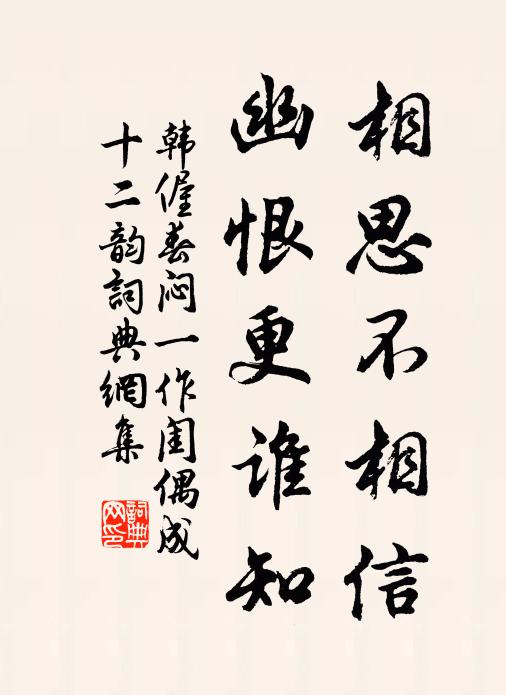 相思不相信
幽恨更谁知
韩偓春闷一作闺偶成
十二韵词典網集
詞典网印